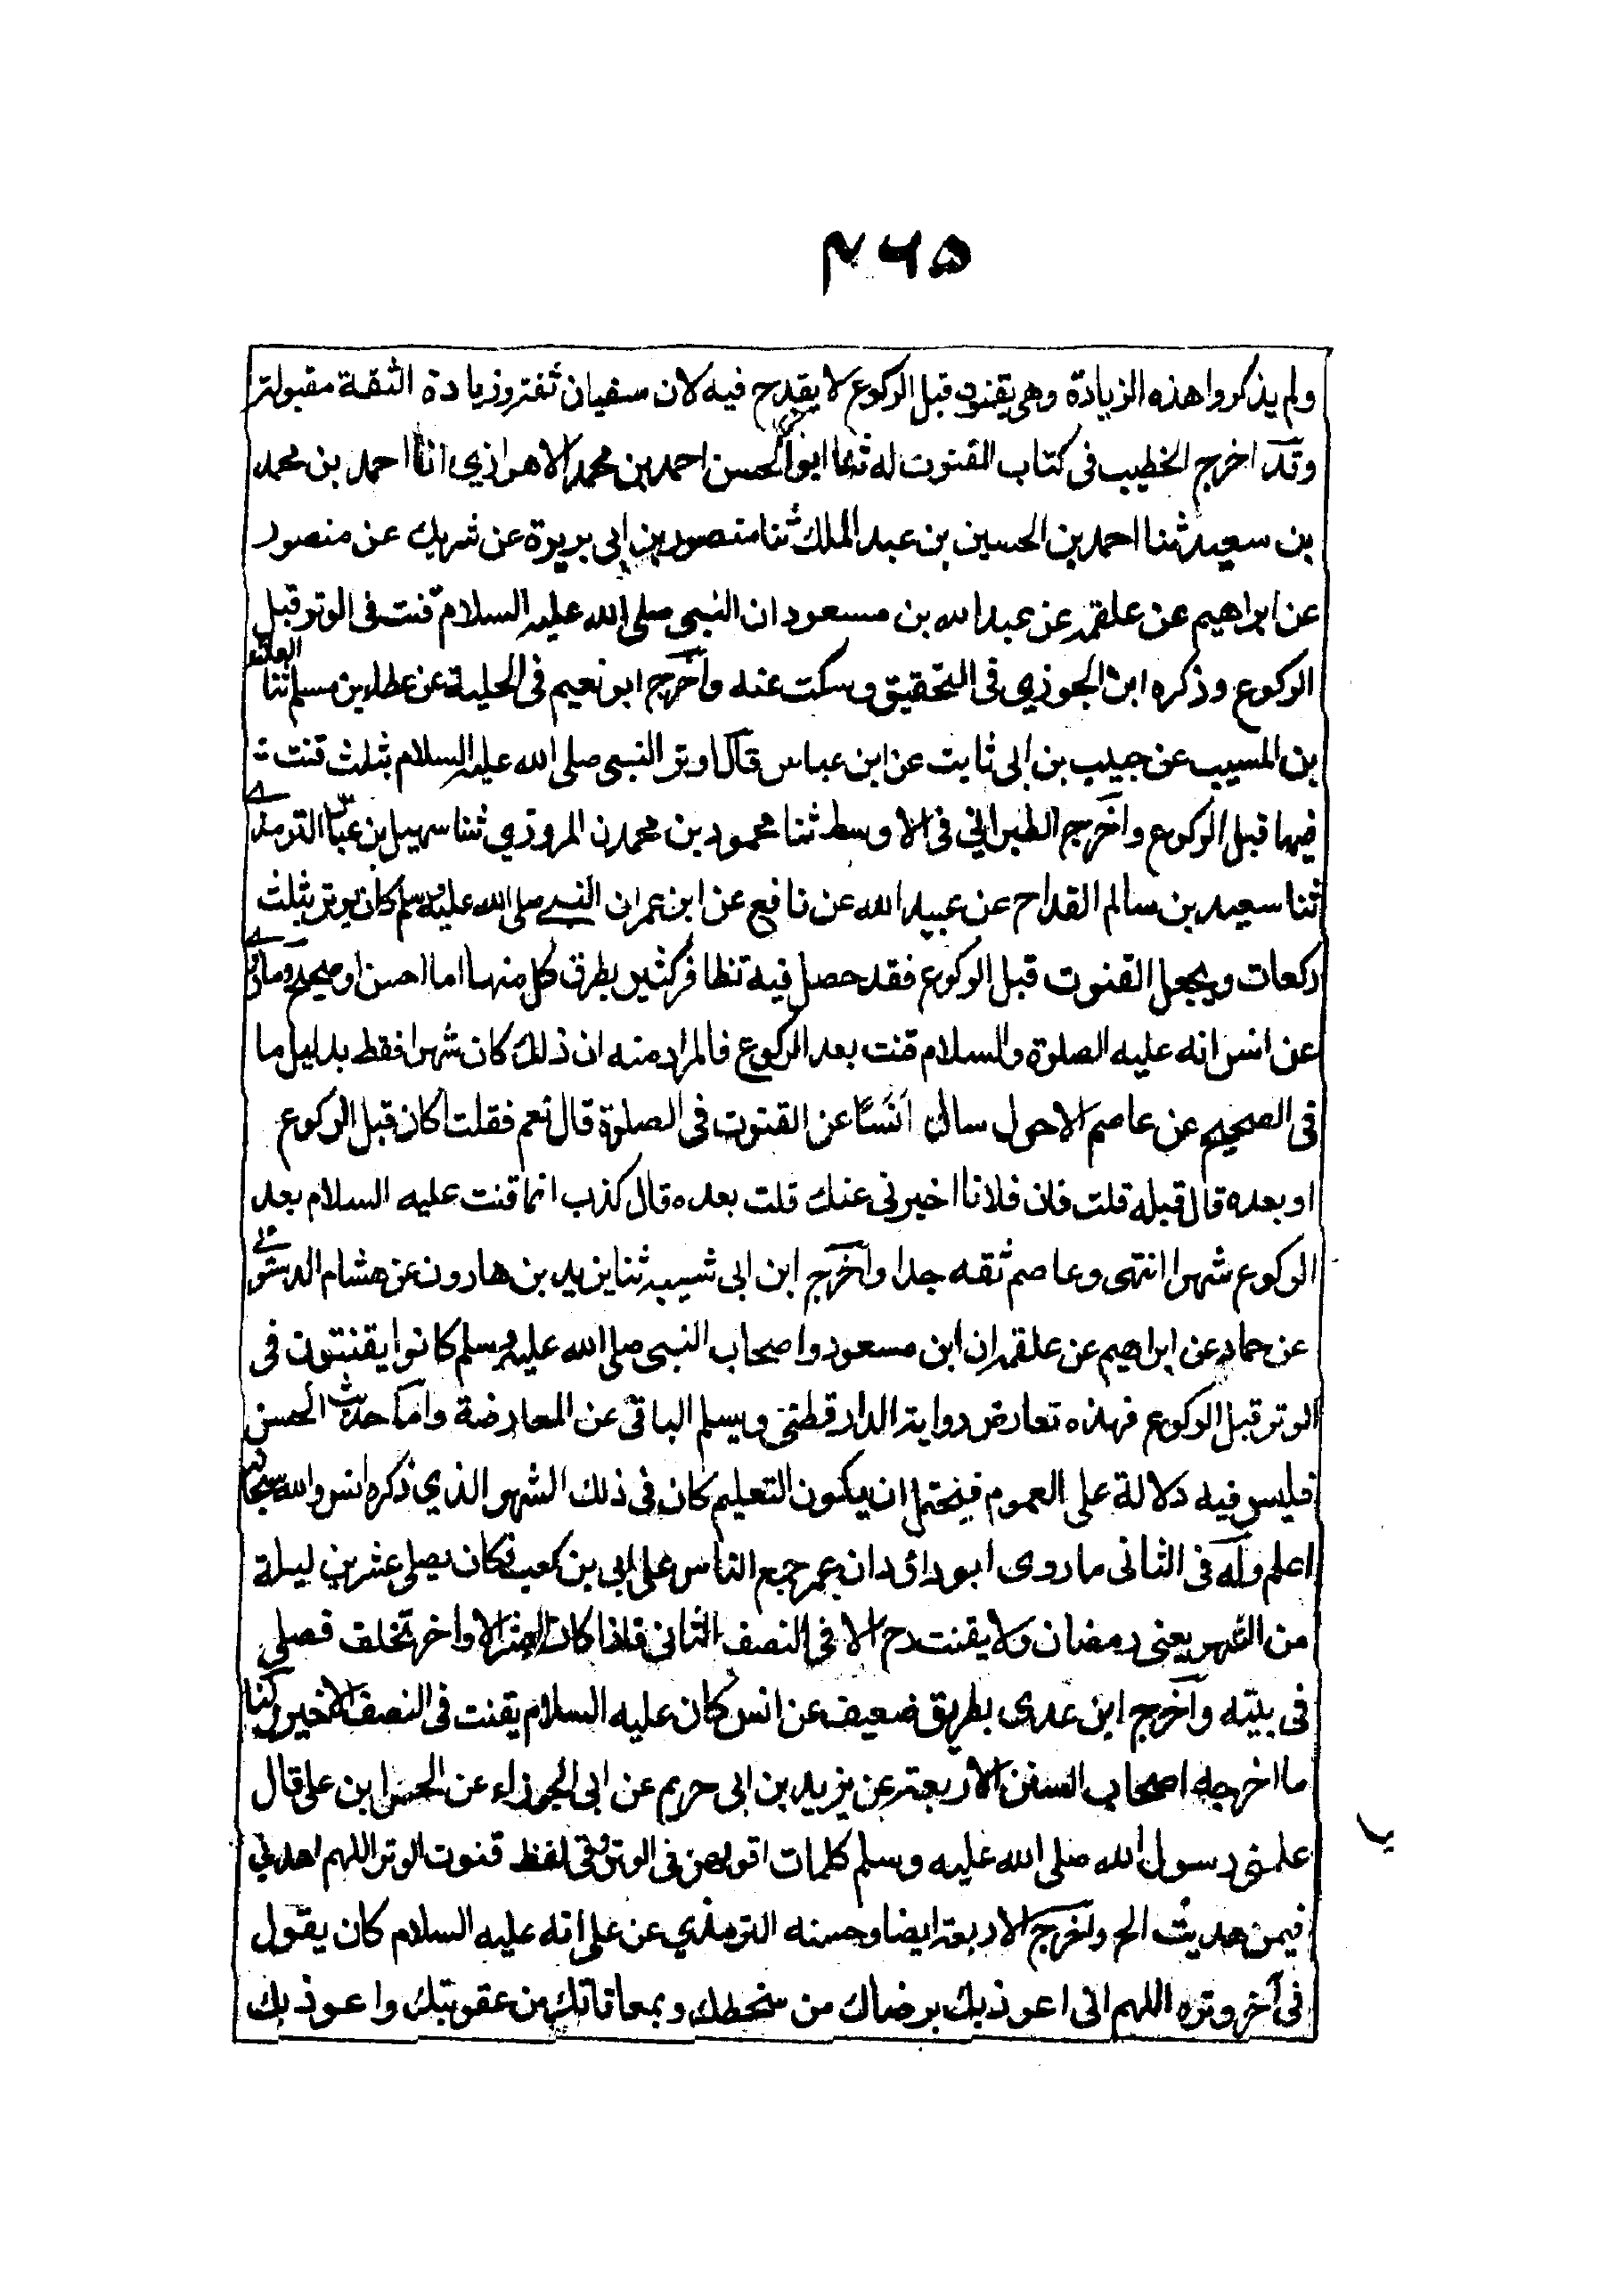 ٢٦٥
ولم يذكروا هذه الزيادة وهى يقنت قبل الركوع لا يقدح فيه لان سفيان ثقة وزيادة الثقة مقبولة
وقد اخرج الخطيب فى كتاب القنوت له ثنا ابو الحسن احمد بن محمد الاهوازي انا احمد بن محمد
بن سعيد ثنا احمد بن الحسين بن عبد الملك ثنا منصور بن ابى بريرة عن شريك عن منصور
عن ابراهيم عن علقمة عن عبد الله بن مسعود ان النبى صلى الله عليه السلام قنت فى الوتر قبل
الركوع وذكره ابن الجوزي فى التحقيق وسكت عنه واخرج ابو نعيم فى الحلية عن عطاء بن مسلم ثنا العلاء
بن المسيب عن حبيب بن ابى ثابت عن ابن عباس قال اوتر النبى صلى الله عليه السلام بثلث قنت
فيها قبل الركوع واخرج الطبرانى فى الاوسط ثنا محمود بن محمد ن المروزي ثنا سهيل بن عباس الترمذے
ثنا سعيد بن سالم القداح عن عبيد الله عن نافع عن ابن عمر ان النبے صلى الله عليه وسلم كان يوتر بثلث
ركعات ويجعل القنوت قبل الركوع فقد حصل فيه تظافر كثير بطرق كل منها اما احسن او صحيح وما فے
عن انس انه عليه الصلوة والسلام قنت بعد الركوع فالمراد منه ان ذلك كان شهرا فقط بدليل ما
فى الصحيح عن عاصم الاحول سالت اَنَسًا عن القنوت فى الصلوة قال نعم فقلت اكان قبل الركوع
او بعده قال قبله قلت فان فلانا اخبرنى عنك قلت بعده قال كذب انما قنت عليه السلام بعد
الركوع شهرا انتهى وعاصم ثقه جدا واخرج ابن ابى شيبه ثنا يزيد بن هارون عن هشام الدستوائے
عن حماد عن ابراهيم عن علقمة ان ابن مسعود واصحاب النبى صلى الله عليه وسلم كانوا يقنتون فى
الوتر قبل الركوع فهذه تعارض رواية الدارقطنى ويسلم الباقى عن المعارضة واما حديث الحسن
فليس فيه دلالة على العموم فيحتمل ان يكون التعليم كان فى ذلك الشهر الذي ذكره انس والله سبحانه
اعلم وله فى الثانى ما روى ابو داؤد ان عمر جمع الناس على ابى بن كعب فكان يصلى عشرين ليلة
من الشهر يعنى رمضان ولا يقنت دح الا فى النصف الثانى فاذا كان العشر الاواخر تخلف فصلى
فى بيته واخرج ابن عدى بطريق ضعيف عن انس كان عليه السلام يقنت فى النصف الاخير ولنا
ما اخرجه اصحاب السنن الاربعة عن يزيد بن ابى حريم عن ابى الجوزاء عن الحسن ابن على قال
علمنى رسول الله صلى الله عليه وسلم كلمات اقولهن فى الوتر وفى لفظ قنوت الوتر اللهم اهدنى
فيمن هديت الح واخرج الاربعة ايضا وحسنه الترمذي عن على انه عليه السلام كان يقول
فى آخر وتره اللهم انى اعوذ بك برضاك من سخطك وبمعافاتك من عقوبتك واعوذ بك